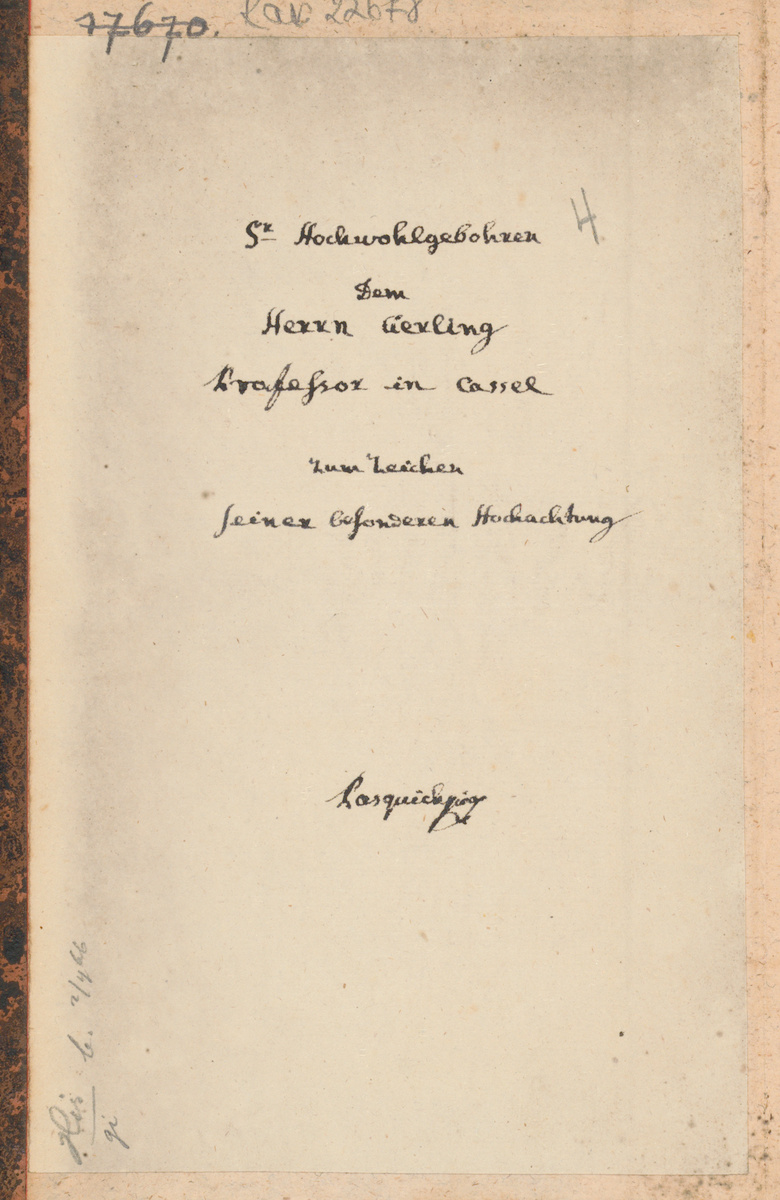 17670.
22678
4
Sr Hochwohlgebohren
Dem
Herrn Gerling
Professor in Cassel
zum Zeichen
seiner besonderen Hochachtung
Pasquich